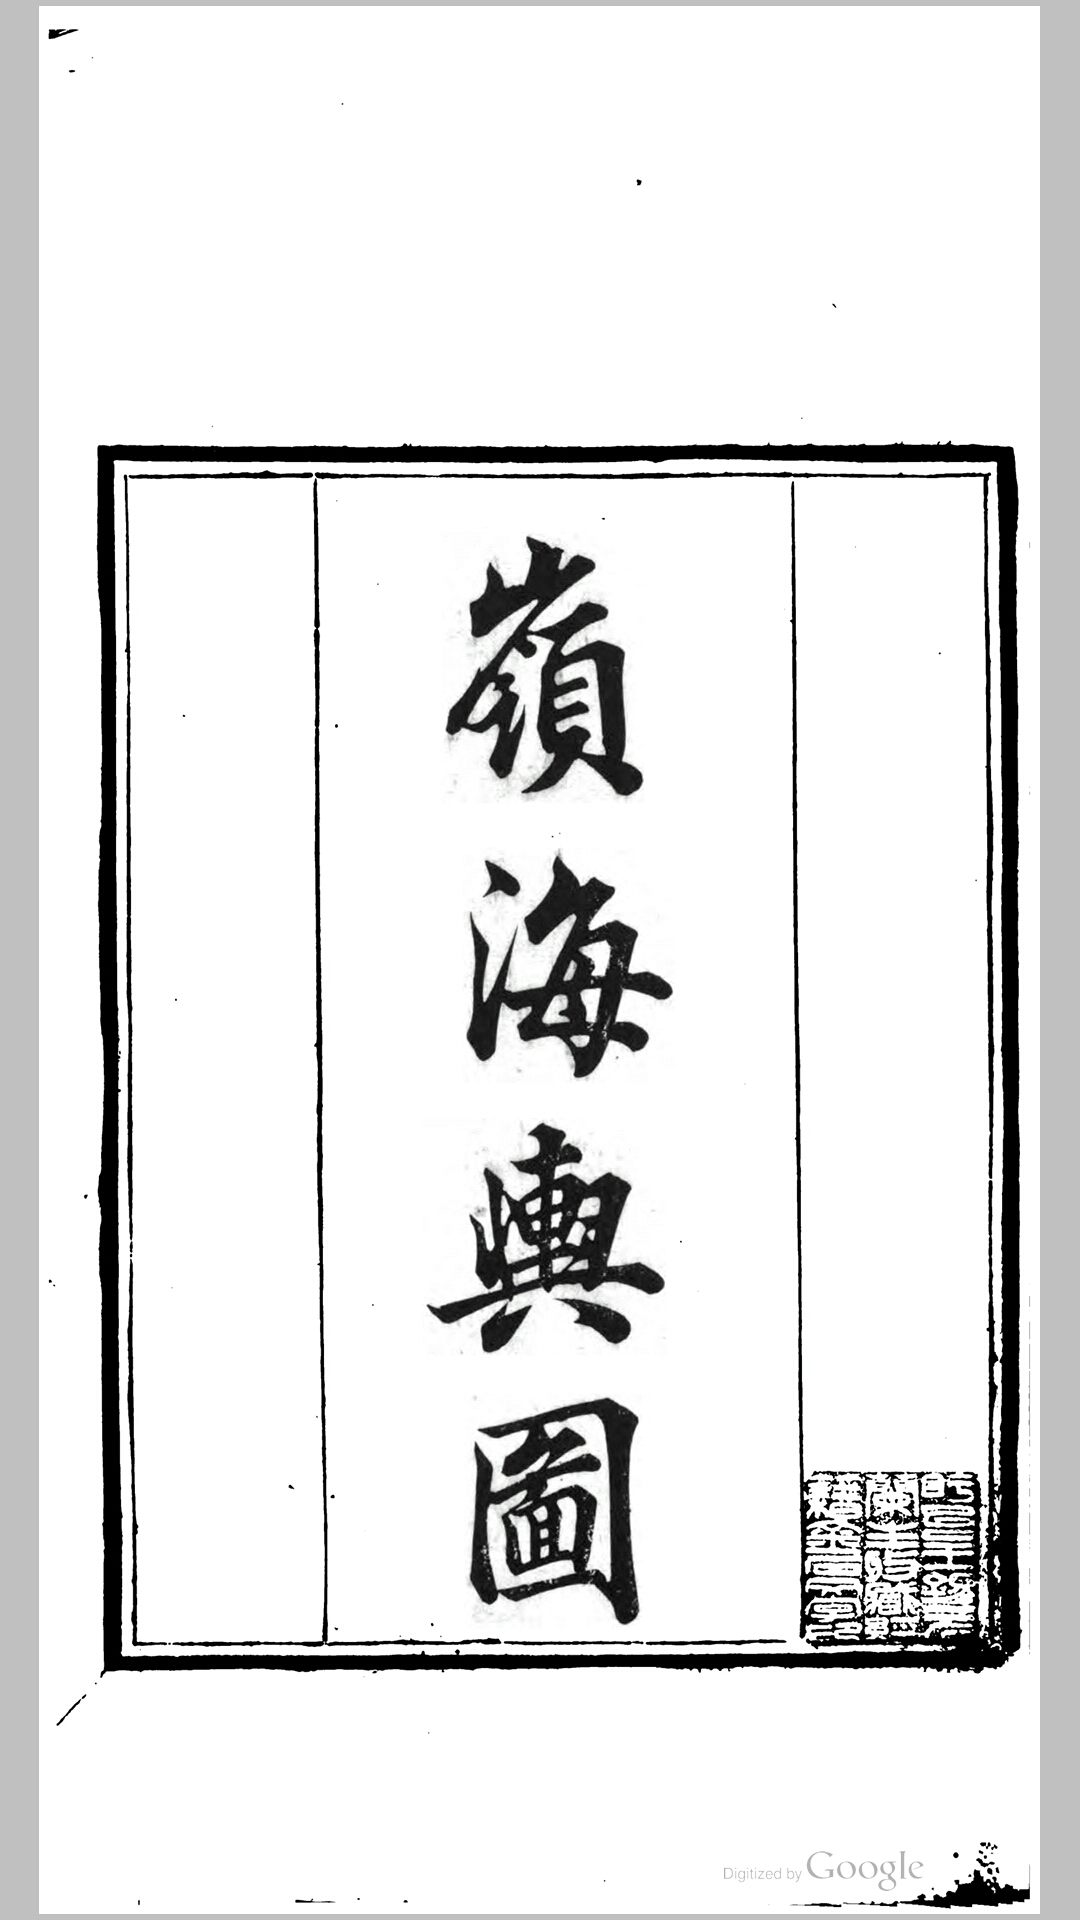 嶺海輿圖
Digitized by Google